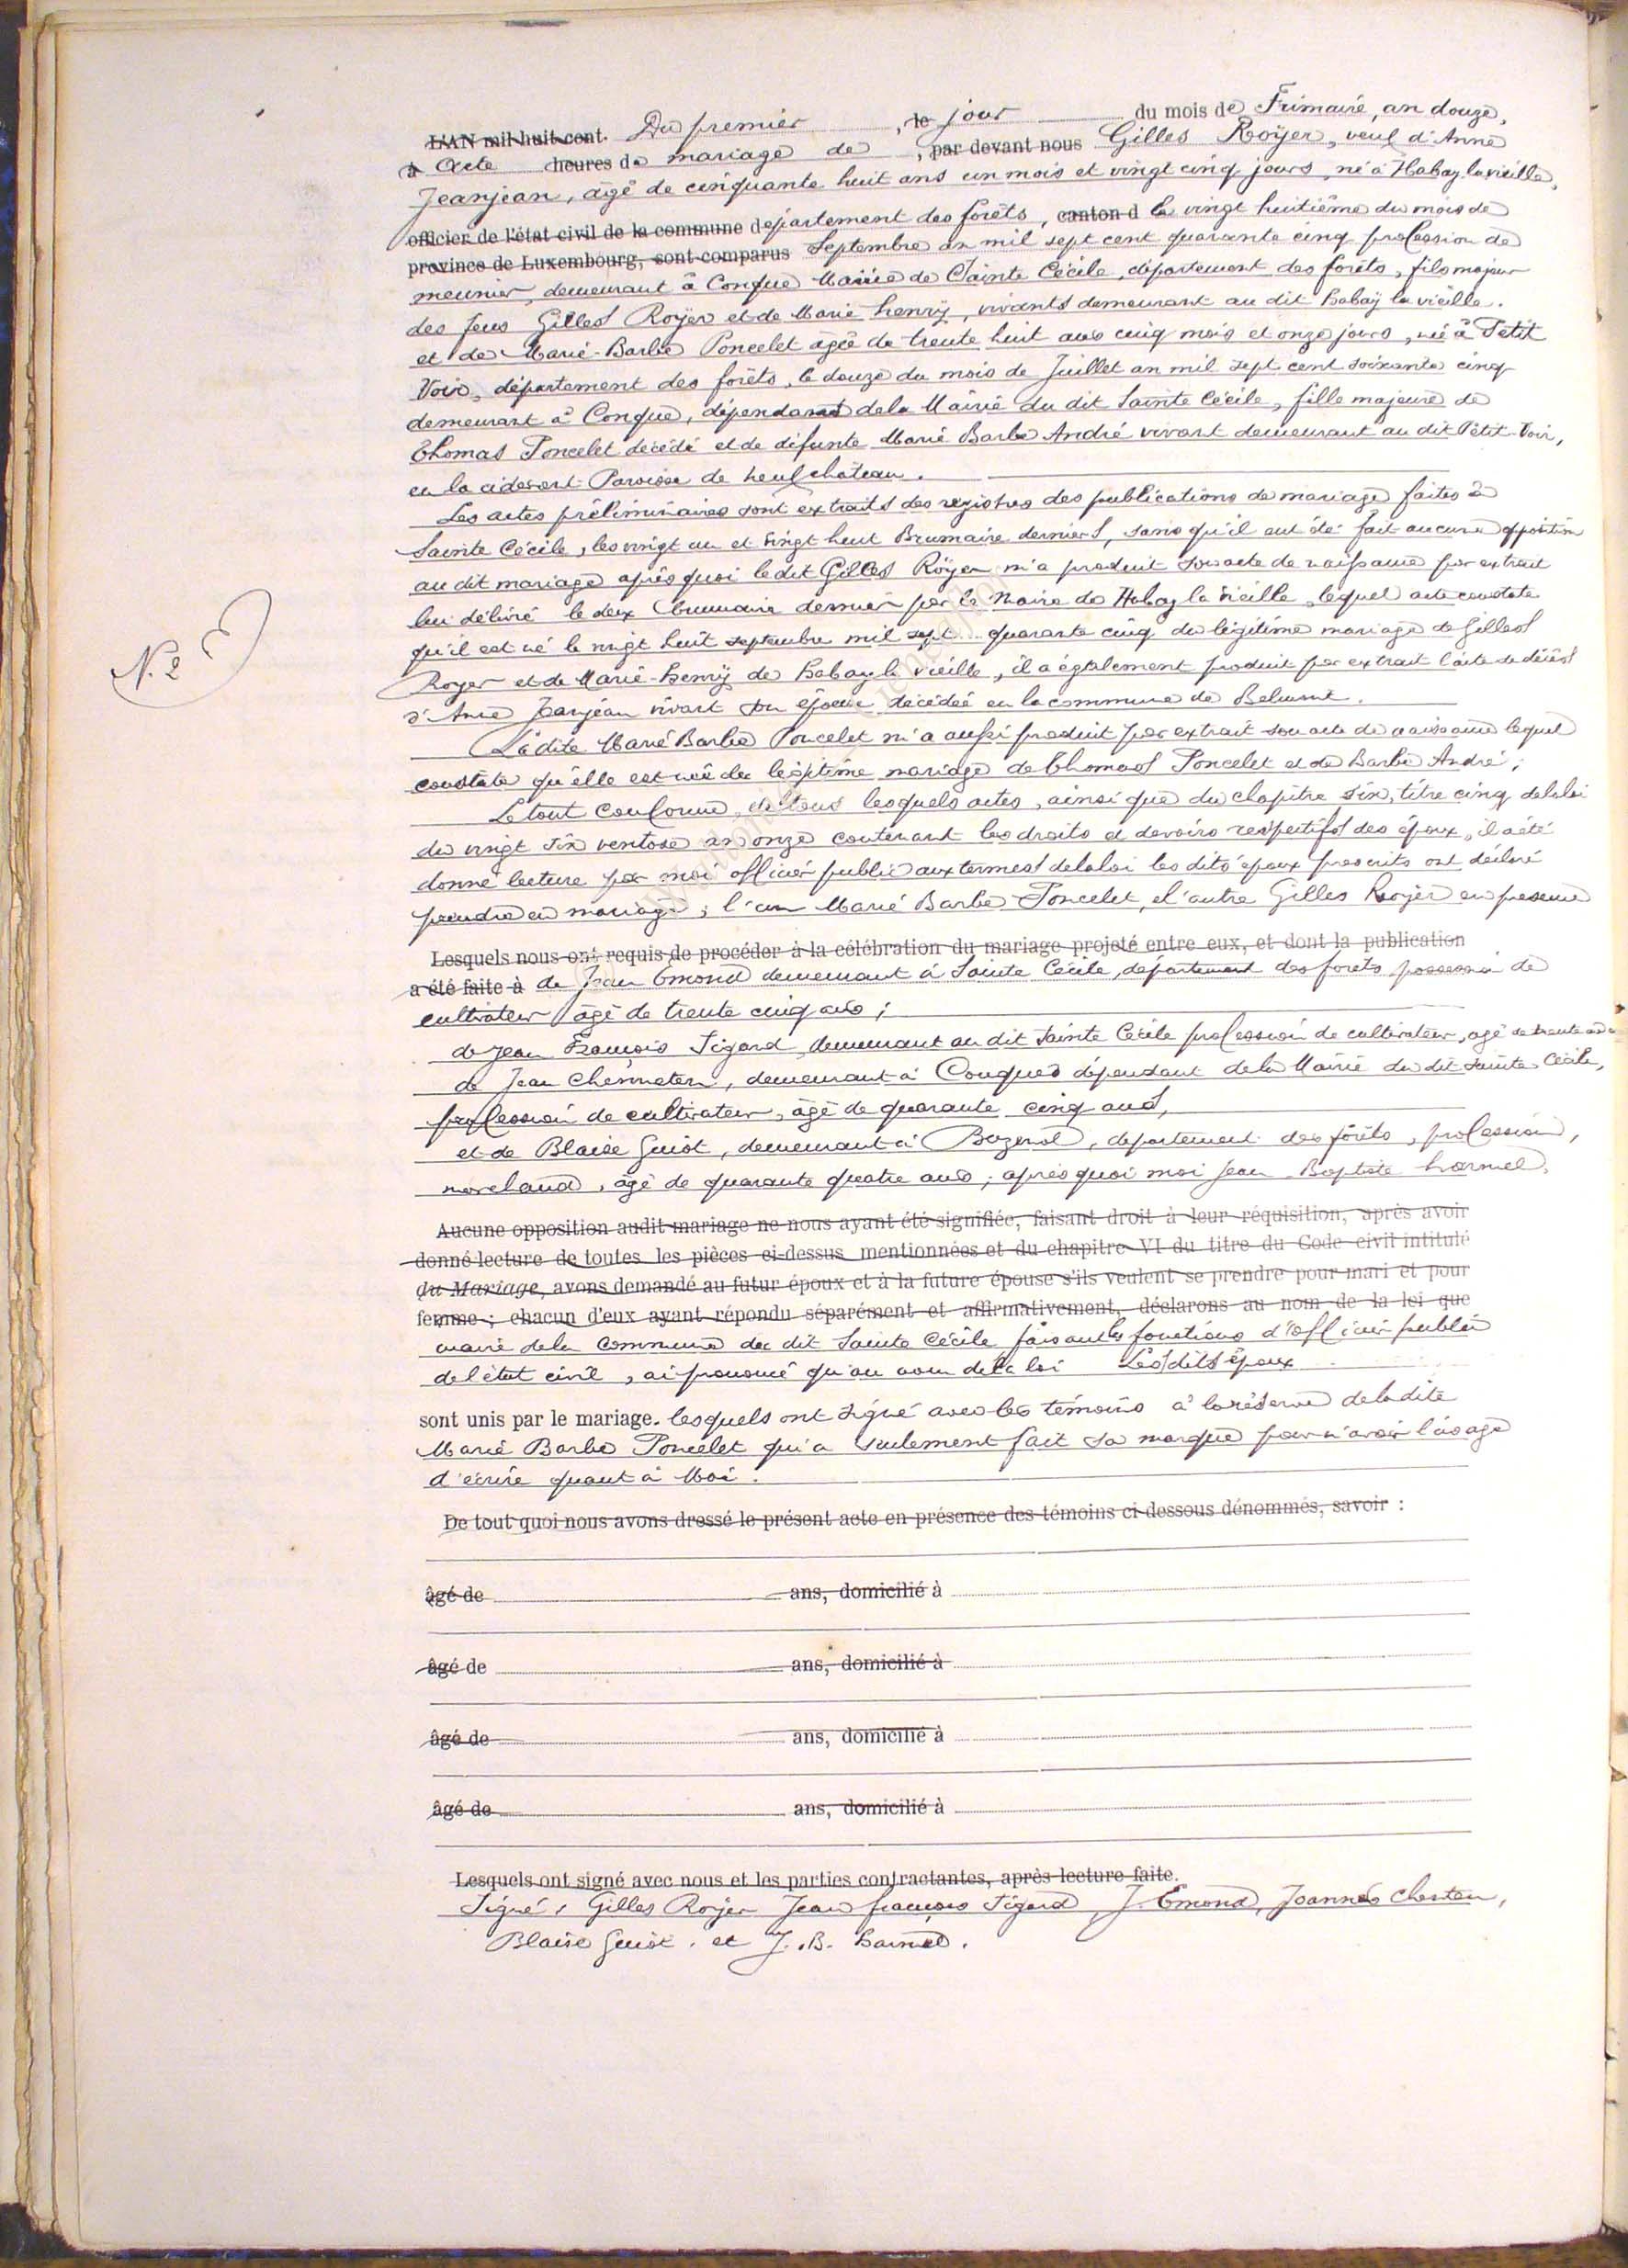 L'AN mil huit cent. Du premier , le jour du mois de Frimaire, an douze,
à Acte heures de mariage de , par devant nous Gilles Roÿer, veuf d'Anne
Jeanjean, âgé de cinquante huit ans un mois et vingt cinq jours, né à Habay la vieille,
officier de l'état civil de la commune département des forêts, canton d le vingt huitième du mois de
province de Luxembourg, sont comparus Septembre an mil sept cent quarante cinq profession de
meunier, demeurant à Conque Mairie de Sainte Cécile, département des forêts, fils majeur
des feus Gilles Roÿer et de Marie henrÿ, vivants demeurant au dit habaÿ la vieille.
et de Marie-Barbe Poncelet âgée de trente huit ans cinq mois et onze jours, née à Petit
Voir, département des forêts, le douze du mois de Juillet an mil sept cent soixante cinq
demeurant à Conque, dépendant de la Mairie du dit Sainte Cécile, fille majeure de
Thomas Poncelet décédé et de défunte Marie Barbe André vivant demeurant au dit Petit-Voir,
en la cidevant Paroisse de neufchateau.
Les actes préliminaires sont extraits des registres des publications de mariage faites à
Sainte Cécile, les vingt un et vingt huit Brumaire derniers, sans qu'il aut été fait aucune opposition
au dit mariage après quoi le dit Gilles Röÿer m'a produit son acte de naissance par extrait
lui délivré le deux brumaire dernier par le Maire de Habay la vieille, lequel acte constate
qu'il est né le vingt huit septembre mil sept quarante cinq du légitime mariage de Gilles
Royer et de Marie-henrÿ de habay la vieille, il a également produit par extrait l'acte de décès
N.2
d'Anne Jeanjean vivant son épouse décédée en la commune de
La dite Marie Barbe Poncelet m'a aussi produit par extrait son acte de naissance lequel
constate qu'elle est née du légitime mariage de Thomas Poncelet et de Barbe André;
Le tout conforme, de tous lesquels actes, ainsi que du chapitre six, titre cinq de la loi
du vingt six ventose an onze contenant les droits et devoirs respectifs des époux, il a été
donné lecture par moi officier public aux termes de la loi les dits époux prescrits ont déclaré
prendre en mariage; l'un Marie Barbe Poncelet, l'autre Gilles Roÿer en présence
Lesquels nous ont requis de procéder à la célébration du mariage projeté entre eux, et dont la publication
a été faite à de Jean Emond demeurant à Sainte Cécile, département des forêts possession de
cultivateur âgé de trente cinq ans;
de Jean François Sigard, demeurant au dit Sainte Cécile profession de cultivateur, agé de trente ans
de Jean, demeurant à Conques dépendant de la Mairie du dit Sainte Cécile,
profession de cultivateur, âgé de quarante cinq ans,
et de Blaise Guiot, demeurant à, département des forêts, profession,
marchand, âgé de quarante quatre ans; après quoi moi Jean Baptiste harmel,
Aucune opposition audit mariage ne nous ayant été signifiée, faisant droit à leur réquisition, après avoir
donné lecture de toutes les pièces ci-dessus mentionnées et du chapitre VI du titre du Code civil intitulé
du Mariage, avons demandé au futur époux et à la future épouse s'ils veulent se prendre pour mari et pour
femme; chacun d'eux ayant répondu séparément et affirmativement, déclarons au nom de la loi que
maire de la commune du dit Sainte Cécile faisant les fonctions d'officier public
de l'état civil, ai prononcé qu'au nom de la loi Les dits époux
sont unis par le mariage. lesquels ont signé avec les témoins à la réserve de la dite
Marie Barbe Poncelet qui a seulement fait sa marque pour n'avoir l'usage
d'écrire quant à Moi.
De tout quoi nous avons dressé le présent acte en présence des témoins ci-dessous dénommés, savoir :
âgé de ans, domicilié à
âgé de ans, domicilié à
âgé de ans, domicilié à
âgé de ans, domicilié à
Lesquels ont signé avec nous et les parties contractantes, après lecture faite.
Signé, Gilles Royer Jean françois Sigard, J. Emond, Joannes Chesten,
Blaise Guiot. et J. B. harmel.